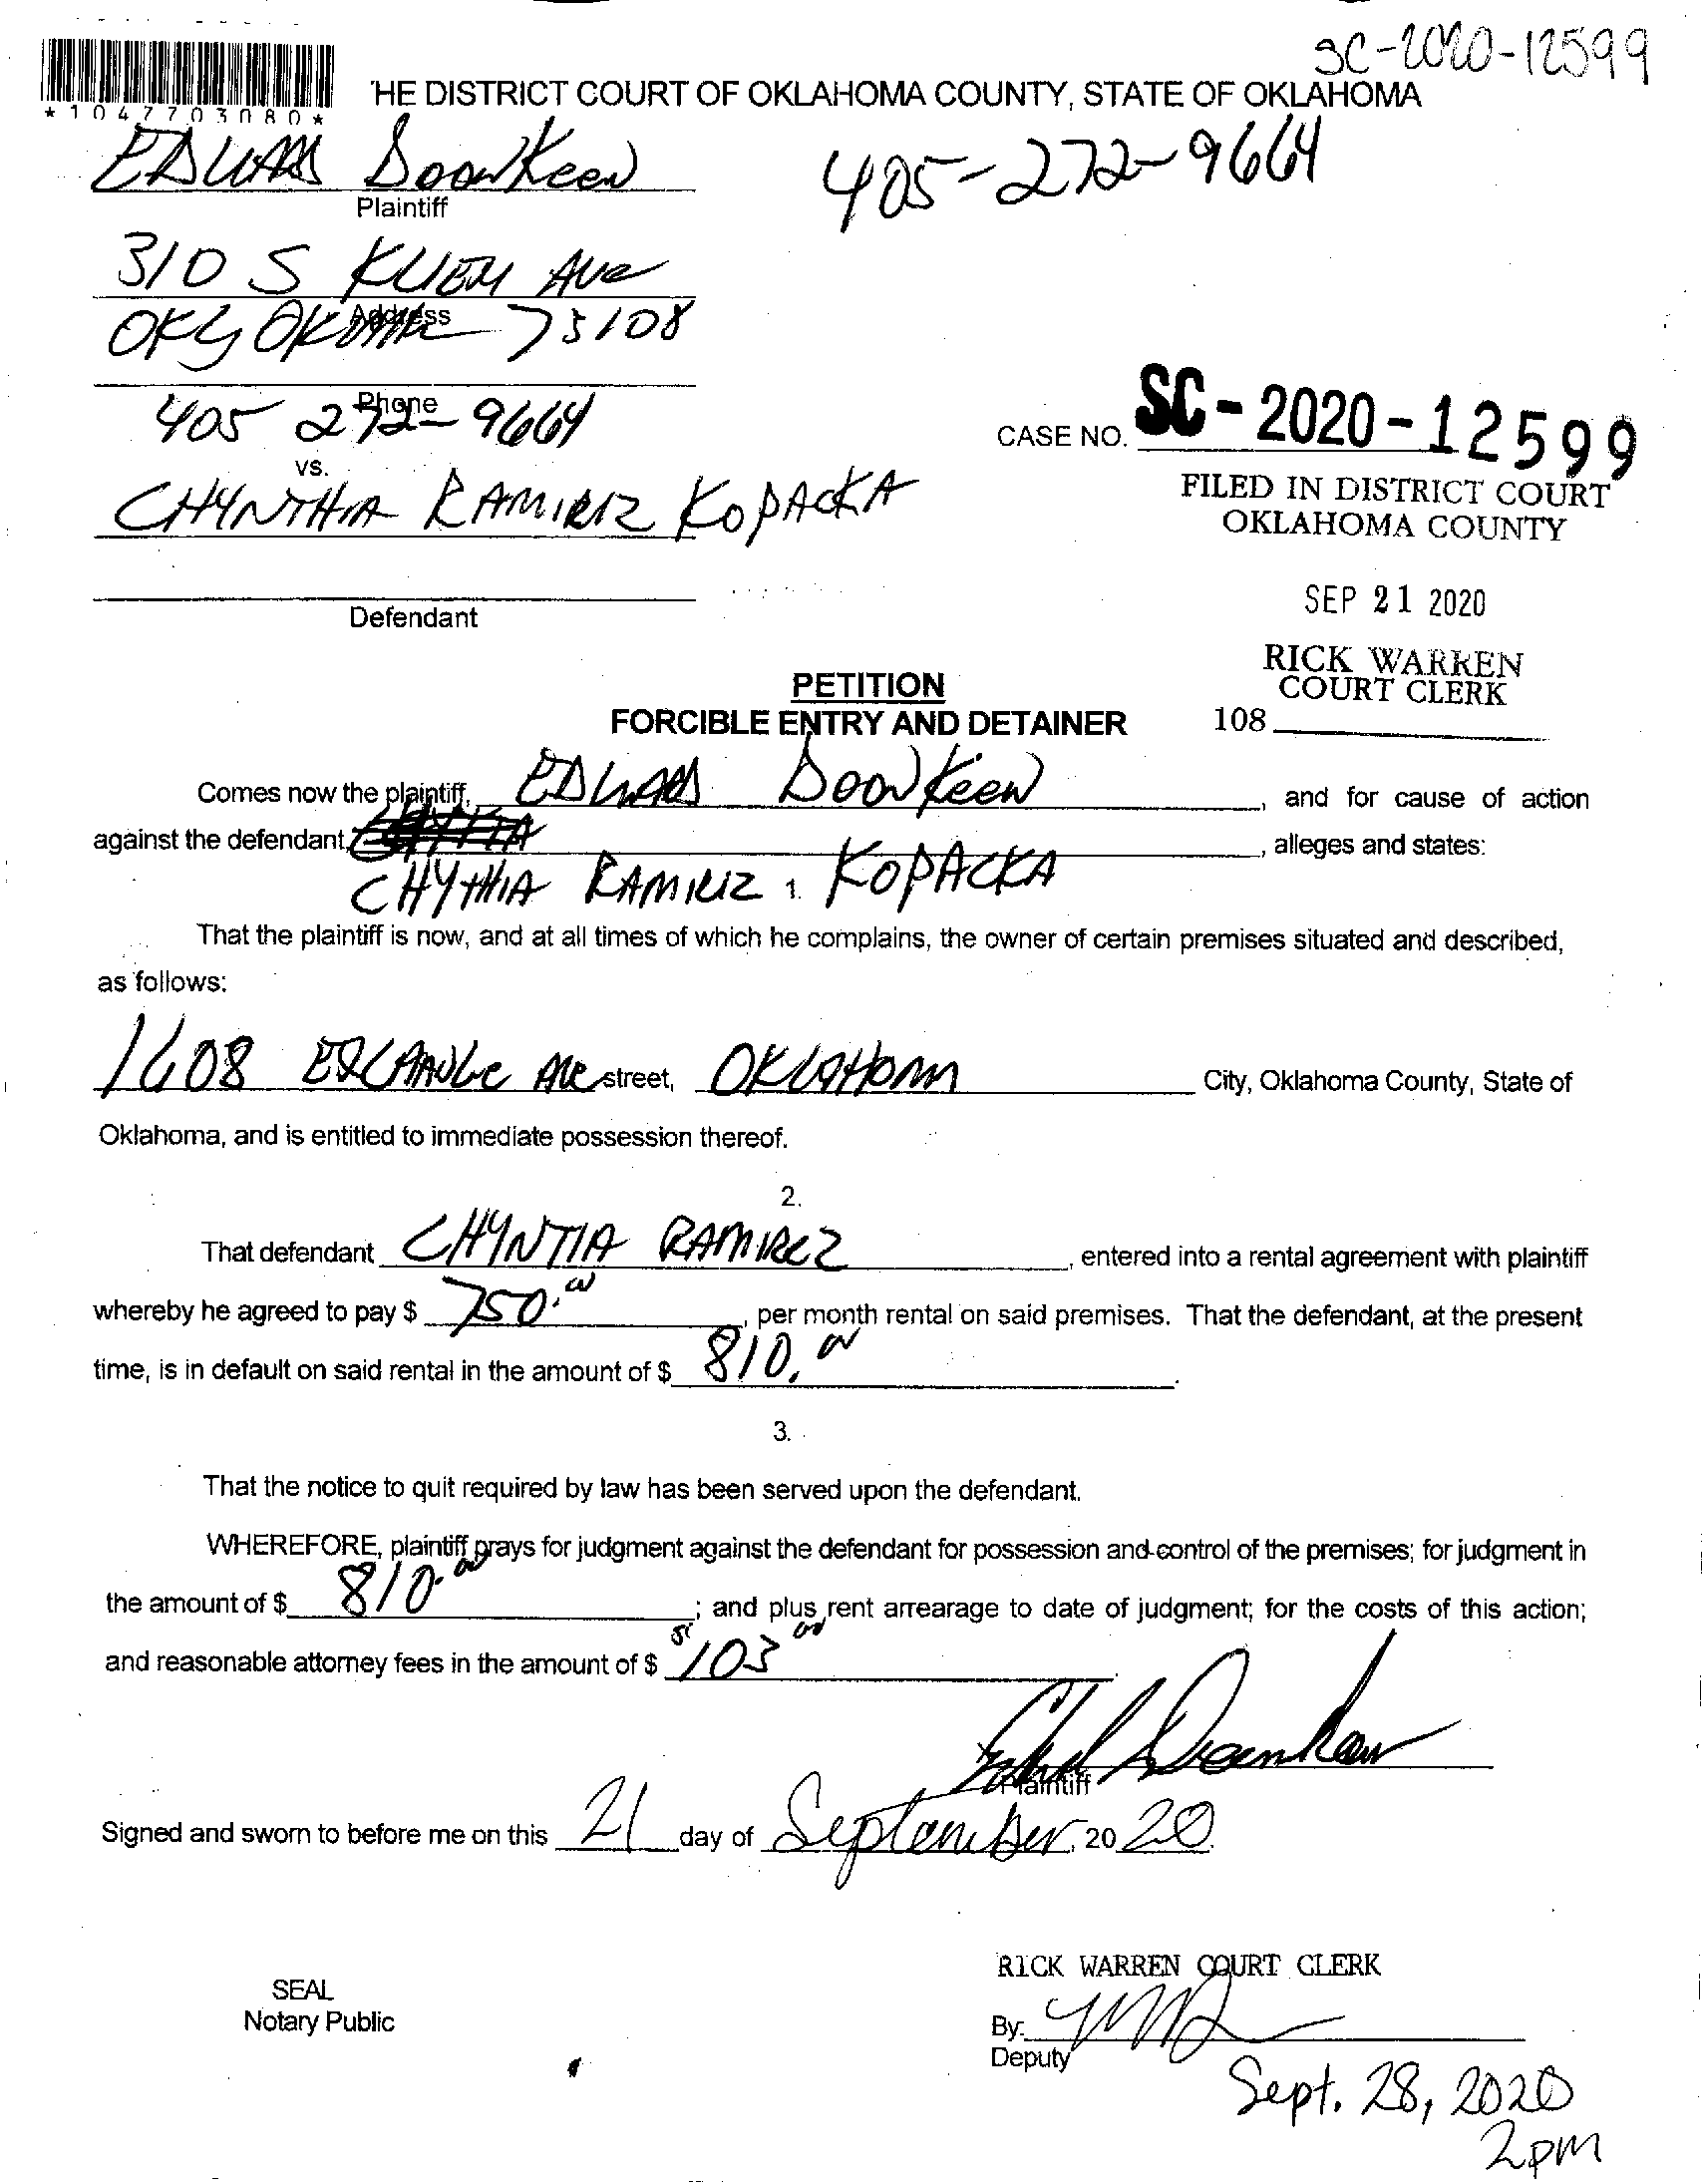 SC-2020-12599
HE DISTRICT COURT OF OKLAHOMA COUNTY, STATE OF OKLAHOMA
*1047703080*
405-272-9664
Plaintiff
310 S Ave
Address
73108
Phone
405 272-9664
CASE NO. SC-2020-12599
vs.
CHYNTHIA RAMIRIZ KOPACKA
FILED IN DISTRICT COURT
OKLAHOMA COUNTY
Defendant
SEP 21 2020
RICK WARREN
COURT CLERK
108
PETITION
FORCIBLE ENTRY AND DETAINER
Comes now the plaintiff, , and for cause of action
against the defendant, , alleges and states:
CHYTHIA RAMIRIZ KOPACKA
1.
That the plaintiff is now, and at all times of which he complains, the owner of certain premises situated and described,
as follows:
1608 Ave street, OKLAHOMA City, Oklahoma County, State of
Oklahoma, and is entitled to immediate possession thereof.
2.
That defendant CHYNTIA RAMIREZ, entered into a rental agreement with plaintiff
whereby he agreed to pay $ 750.00, per month rental on said premises. That the defendant, at the present
time, is in default on said rental in the amount of $ 810.00.
3.
That the notice to quit required by law has been served upon the defendant.
WHEREFORE, plaintiff prays for judgment against the defendant for possession and control of the premises; for judgment in
the amount of $ 810.00; and plus rent arrearage to date of judgment; for the costs of this action;
and reasonable attorney fees in the amount of $ 103.00.
Plaintiff
Signed and sworn to before me on this 21 day of September, 20 20.
RICK WARREN COURT CLERK
SEAL
Notary Public
By:
Deputy
Sept. 28, 2020
2pm